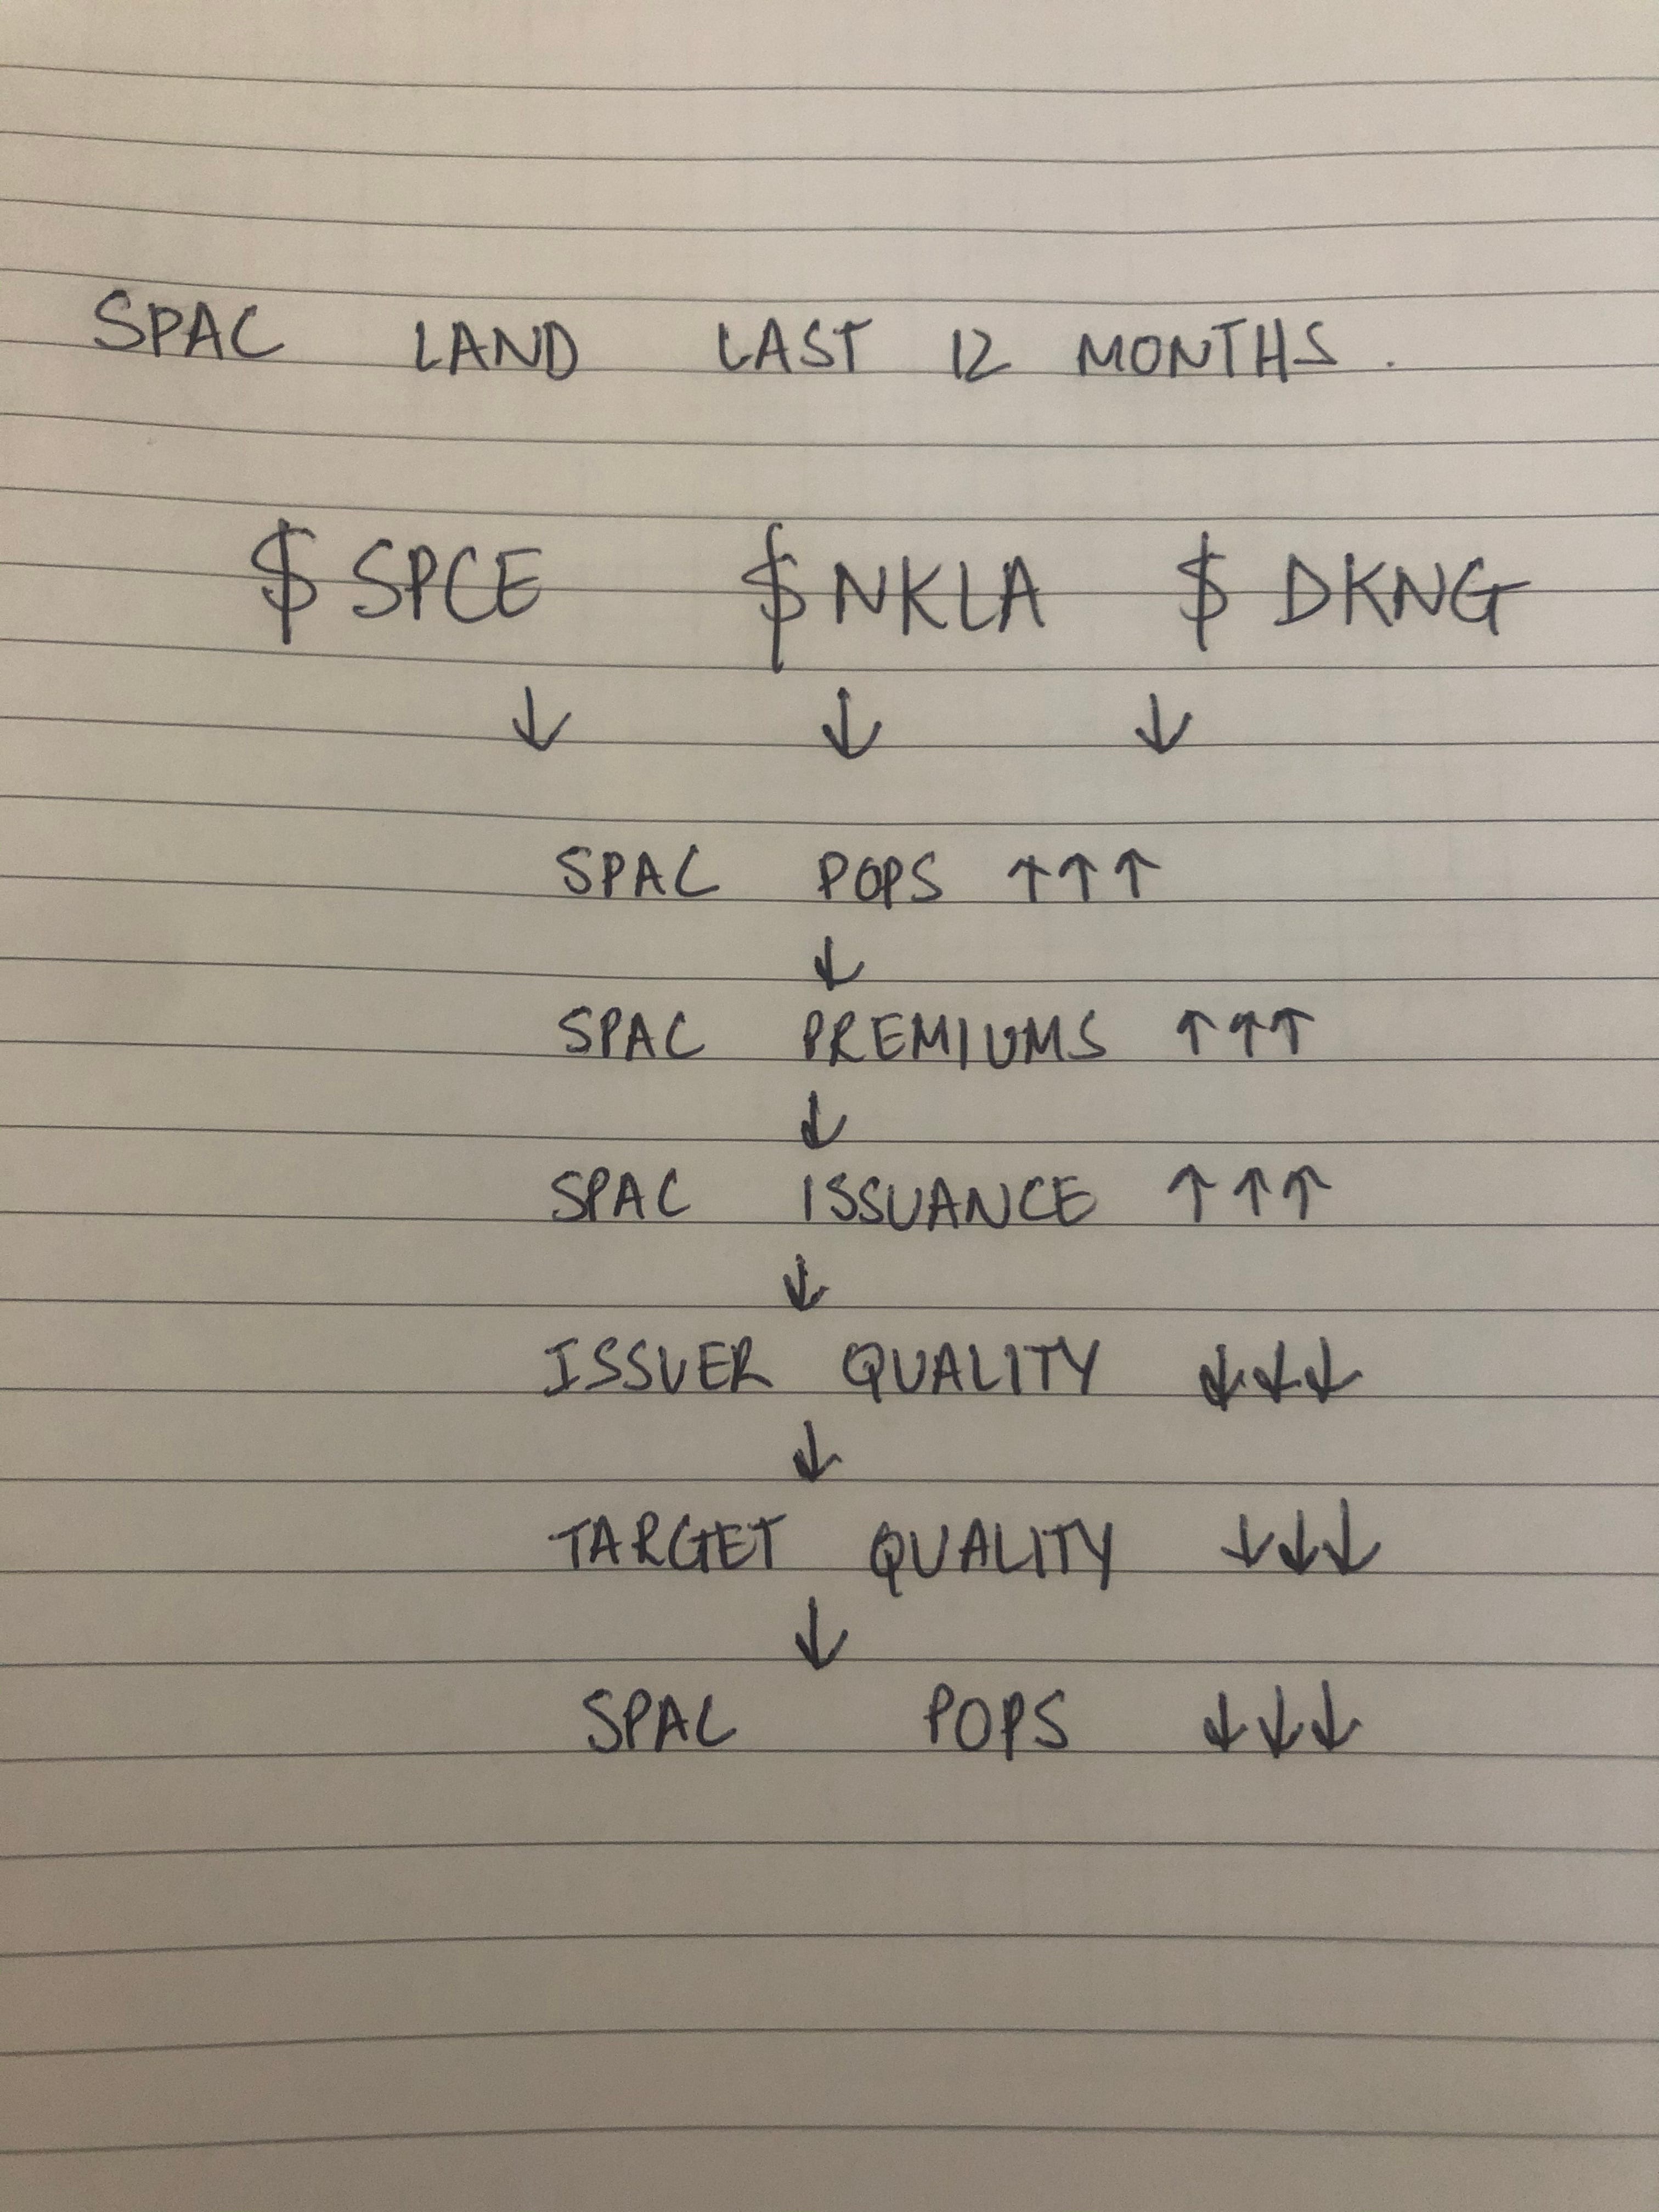 SPAC LAND LAST 12 MONTHS.
$ SPCE $ NKLA $ DKNG
↓ ↓ ↓
SPAC POPS ↑↑↑
↓
SPAC PREMIUMS ↑↑↑
↓
SPAC ISSUANCE ↑↑↑
↓
ISSUER QUALITY ↓↓↓
↓
TARGET QUALITY ↓↓↓
↓
SPAC POPS ↓↓↓